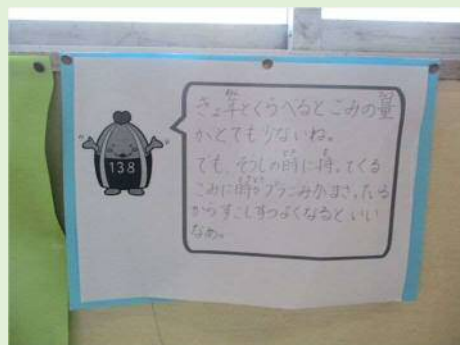 138
きょ年とくらべるとごみの量
がとてもりないね。
でも、そうじの時に持ってくる
ごみに時々プラごみがまざったる
からすこしずつよくなるといい
なあ。